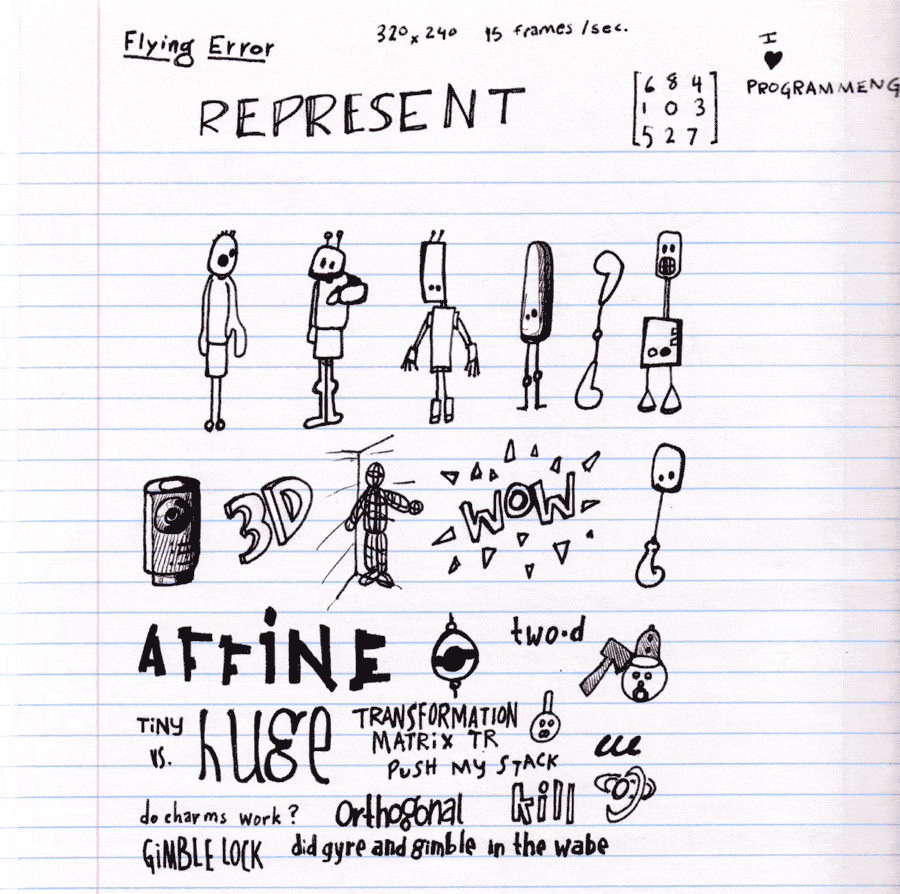 Flying Error
320x240 15 frames/sec.
I
♥
PROGRAMMENG
REPRESENT
6 8 4
1 0 3
5 2 7
3D
WOW
AFFiNE
two·d
TiNY
vs.
huge
TRANSFORMATION
MATRiX TR
PUSH MY STACK
do charms work?
Orthogonal
kill
GiMBLE LOCK
did gyre and gimble in the wabe